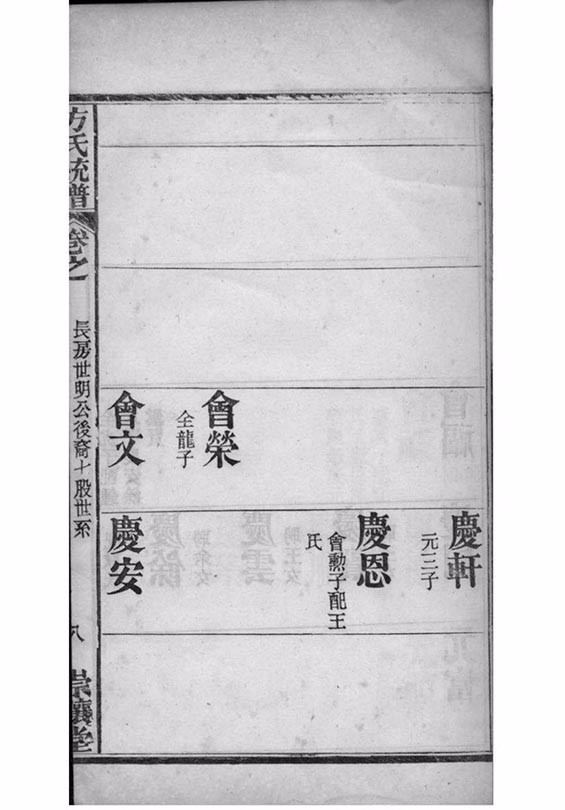 會榮
全龍子
會文
慶軒
元三子
慶恩
會勳子配王
氏
慶安
方氏統譜
卷之
長房世明公後裔十股世系
八